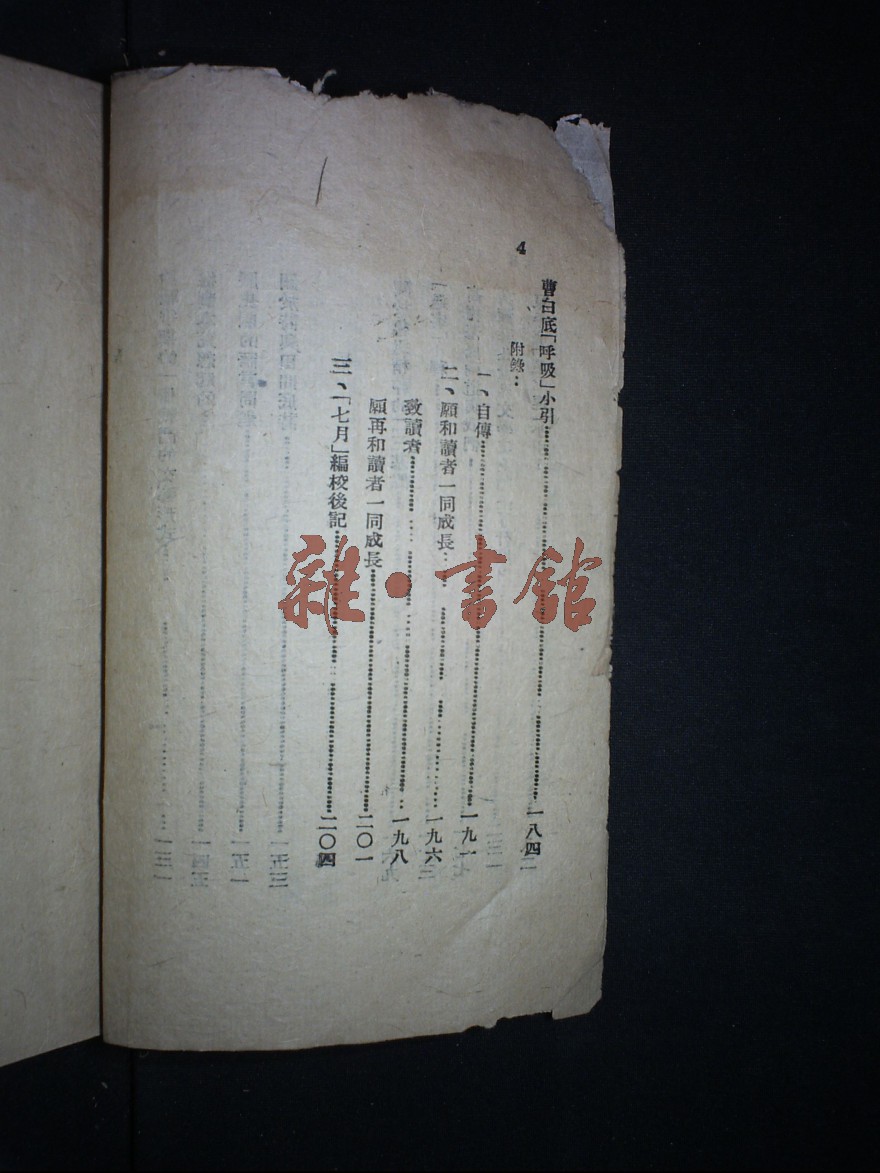 4
曹白底「呼吸」小引……一八四
附錄：
一、自傳……一九一
二、願和讀者一同成長……一九六
致讀者……一九八
願再和讀者一同成長……二〇一
三、「七月」編校後記……二〇四
雜·書館